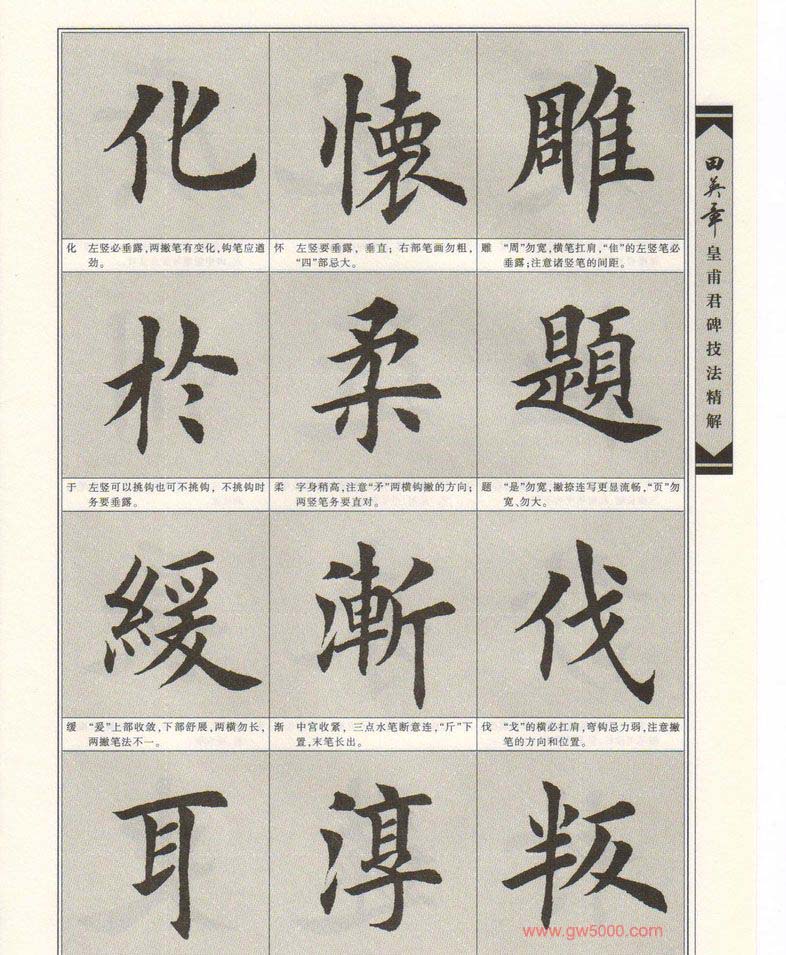 化 懷 雕
化 左竖必垂露,两撇笔有变化,钩笔应遒
劲。
怀 左竖要垂露,垂直;右部笔画勿粗,
“四”部忌大。
雕 “周”勿宽,横笔扛肩,“隹”的左竖笔必
垂露;注意诸竖笔的间距。
於 柔 題
于 左竖可以挑钩也可不挑钩,不挑钩时
务要垂露。
柔 字身稍高,注意“矛”两横钩撇的方向;
两竖笔务要直对。
题 “是”勿宽,撇捺连写更显流畅,“页”勿
宽、勿大。
緩 漸 伐
缓 “爰”上部收敛,下部舒展,两横勿长,
两撇笔法不一。
渐 中宫收紧,三点水笔断意连,“斤”下
置,末笔长出。
伐 “戈”的横必扛肩,弯钩忌力弱,注意撇
笔的方向和位置。
耳 淳 叛
田英章
皇甫君碑技法精解
www.gw5000.com